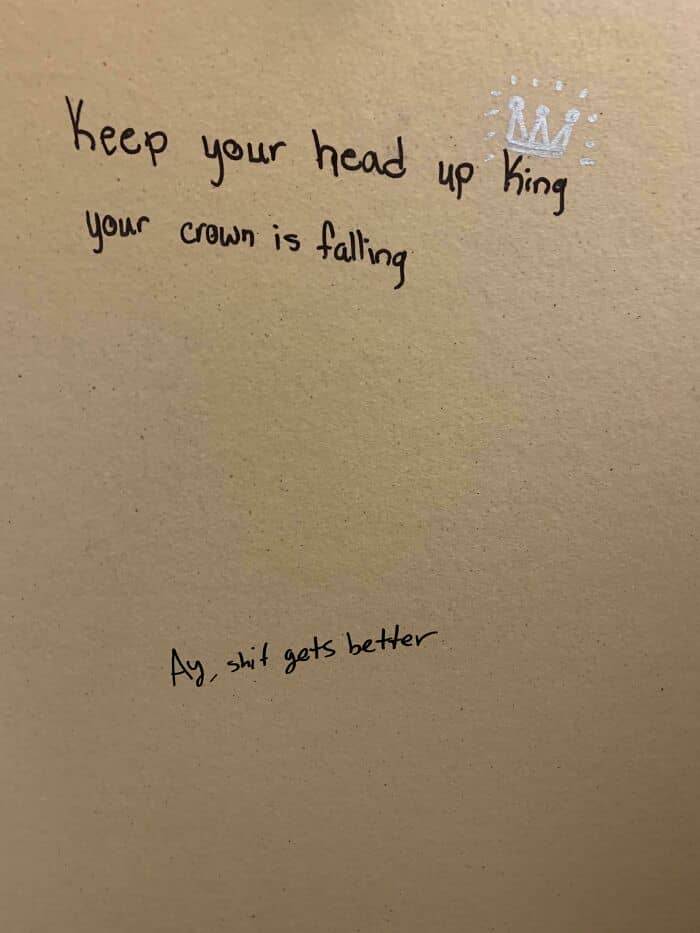 Keep your head up King
your crown is falling
Ay, shit gets better